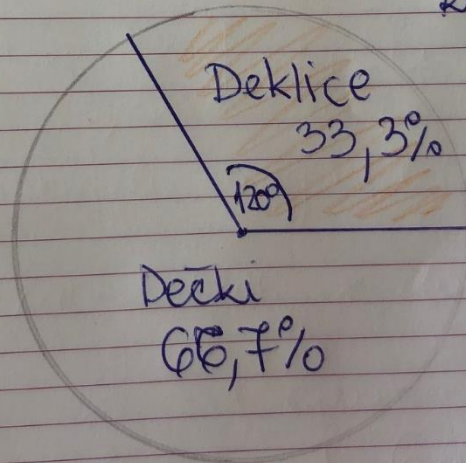 Deklice
33,3%
120°
Dečki
66,7%